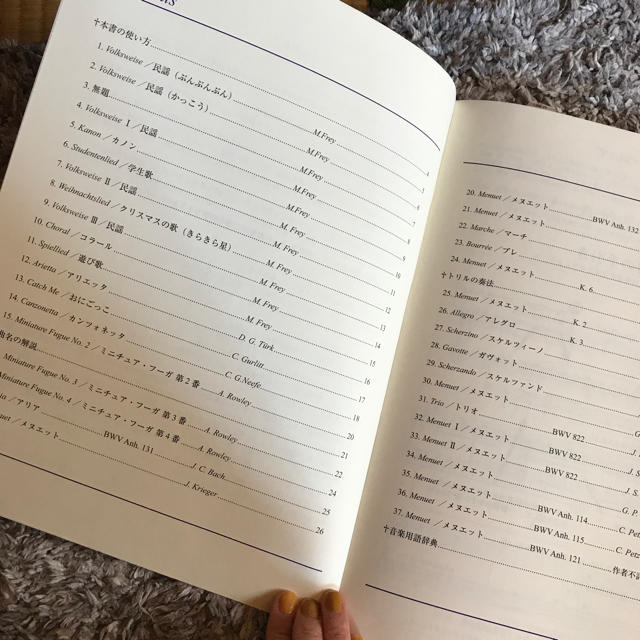 †本書の使い方
1. Volksweise／民謡（ぶんぶんぶん） M.Frey 4
2. Volksweise／民謡（かっこう） M.Frey 5
3. 無題 M.Frey 6
4. Volksweise Ⅰ／民謡 M.Frey 7
5. Kanon／カノン M.Frey 8
6. Studentenlied／学生歌 M.Frey 9
7. Volksweise Ⅱ／民謡 M.Frey 10
8. Weihnachtslied／クリスマスの歌（きらきら星） M.Frey 11
9. Volksweise Ⅲ／民謡 M.Frey 12
10. Choral／コラール M.Frey 13
11. Spiellied／遊び歌 M.Frey 14
12. Arietta／アリエッタ D. G. Türk 15
13. Catch Me／おにごっこ C. Gurlitt 17
14. Canzonetta／カンツォネッタ C. G.Neefe 18
15. Miniature Fugue No. 2／ミニチュア・フーガ 第2番 A. Rowley 20
曲名の解説 21
Miniature Fugue No. 3／ミニチュア・フーガ 第3番 A. Rowley 22
Miniature Fugue No. 4／ミニチュア・フーガ 第4番 A. Rowley 24
／アリア BWV Anh. 131 J. C. Bach 25
／メヌエット J. Krieger 26
20. Menuet／メヌエット BWV Anh. 132
21. Menuet／メヌエット
22. Marche／マーチ
23. Bourrée／ブレ
24. Menuet／メヌエット K. 6
†トリルの奏法
25. Menuet／メヌエット K. 2
26. Allegro／アレグロ K. 3
27. Scherzino／スケルツィーノ
28. Gavotte／ガヴォット
29. Scherzando／スケルツァンド
30. Menuet／メヌエット G.
31. Trio／トリオ BWV 822 J.
32. Menuet Ⅰ／メヌエット BWV 822 J. S
33. Menuet Ⅱ／メヌエット BWV 822 J. S
34. Menuet／メヌエット
35. Menuet／メヌエット G. P
36. Menuet／メヌエット BWV Anh. 114 C. Petz
37. Menuet／メヌエット BWV Anh. 115 C. Petz
BWV Anh. 121 作者不
†音楽用語辞典